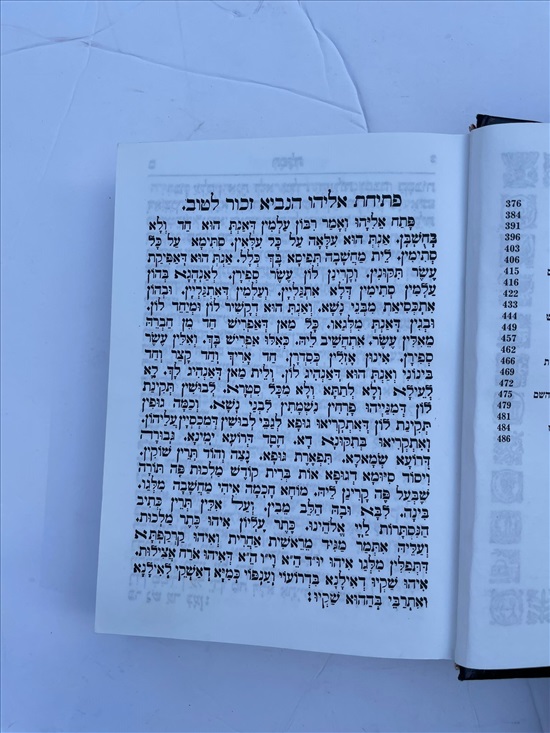 פתיחת אליהו הנביא זכור לטוב.
פָּתַח אֵלִיָּהוּ וְאָמַר רִבּוֹן עָלְמִין דְּאַנְתְּ הוּא חַד וְלָא
בְּחֻשְׁבָּן. אַנְתְּ הוּא עִלָּאָה עַל כָּל עִלָּאִין. סְתִימָא עַל כָּל
סְתִימִין. לֵית מַחֲשָׁבָה תְּפִיסָא בָךְ כְּלָל. אַנְתְּ הוּא דְּאַפִּיקַת
עֲשַׂר תִּקּוּנִין. וְקָרֵינָן לוֹן עֲשַׂר סְפִירָן. לְאַנְהָגָא בְּהוֹן
עָלְמִין סְתִימִין דְּלָא אִתְגַּלְיָין. וְעָלְמִין דְּאִתְגַּלְיָין. וּבְהוֹן
אִתְכַּסִּיאַת מִבְּנֵי נָשָׁא. וְאַנְתְּ הוּא דְּקָשִׁיר לוֹן וּמְיַחֵד לוֹן.
וּבְגִין דְּאַנְתְּ מִלְּגָאו. כָּל מַאן דְּאַפְרִישׁ חַד מִן חַבְרֵהּ
מֵאִלֵּין עֲשַׂר. אִתְחַשִּׁיב לֵיהּ. כְּאִלּוּ אַפְרִישׁ בָּךְ. וְאִלֵּין עֲשַׂר
סְפִירָן. אִינּוּן אָזְלִין כְּסִדְרָן. חַד אֲרִיךְ וְחַד קָצֵר וְחַד
בֵּינוֹנִי וְאַנְתְּ הוּא דְּאַנְהִיג לוֹן. וְלֵית מַאן דְּאַנְהִיג לָךְ. לָא
לְעֵילָּא וְלָא לְתַתָּא וְלָא מִכָּל סִטְרָא. לְבוּשִׁין תַּקִּינַת
לוֹן דְּמִנַּיְיהוּ פָּרְחִין נִשְׁמָתִין לִבְנֵי נָשָׁא. וְכַמָּה גוּפִין
תַּקִּינַת לוֹן דְּאִתְקְרִיאוּ גוּפָא לְגַבֵּי לְבוּשִׁין דִּמְכַסְיָין עֲלֵיהוֹן.
וְאִתְקְרִיאוּ בְּתִקּוּנָא דָא. חֶסֶד דְּרוֹעָא יְמִינָא. גְּבוּרָה
דְּרוֹעָא שְׂמָאלָא. תִּפְאֶרֶת גּוּפָא. נֶצַח וְהוֹד תְּרֵין שׁוֹקִין.
וִיסוֹד סִיּוּמָא דְגוּפָא אוֹת בְּרִית קוֹדֶשׁ מַלְכוּת פֶּה תּוֹרָה
שֶׁבְּעַל פֶּה קָרֵינָן לֵיהּ. מוֹחָא חָכְמָה אִיהִי מַחֲשָׁבָה מִלְּגוֹ.
בִּינָה לִבָּא וּבָהּ הַלֵּב מֵבִין. וְעַל אִלֵּין תְּרֵין כְּתִיב
הַנִּסְתָּרוֹת לַיְיָ אֱלֹהֵינוּ. כֶּתֶר עֶלְיוֹן אִיהוּ כֶּתֶר מַלְכוּת.
וְעָלֵיהּ אִתְּמַר מַגִּיד מֵרֵאשִׁית אַחֲרִית וְאִיהוּ קַרְקַפְתָּא
דִתְפִלִּין מִלְּגוֹ אִיהוּ יוּ״ד הֵ״א וָי״ו הֵ״א דְּאִיהוּ אֹרַח אֲצִילוּת.
אִיהוּ שַׁקְיוּ דְאִילָנָא בִּדְרוֹעוֹי וְעַנְפּוֹי כְּמַיָּא דְאַשְׁקֵי לְאִילָנָא
וְאִתְרַבֵּי בְּהַהוּא שַׁקְיוּ׃
376
384
391
396
403
406
415
416
422
433
444
449
457
462
466
469
472
475
479
481
484
486